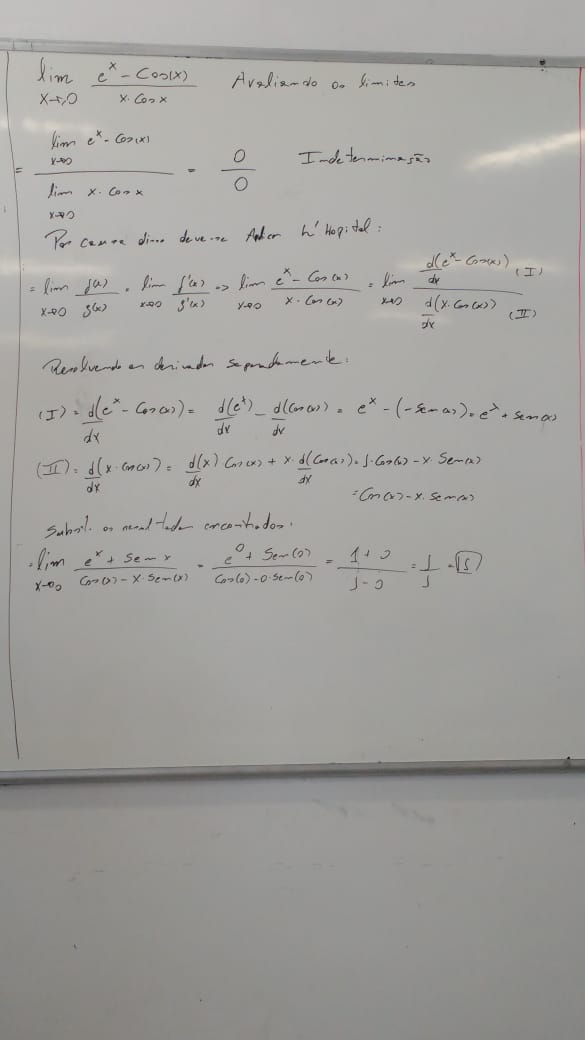 lim e^x - Cos(x) / x. Cos x Avaliando os limites
x→0
= lim e^x - Cos(x) / lim x. Cos x = 0/0 Indeterminação
x→0
x→0
Por causa disso deve-se Aplicar L'Hopital:
= lim f(x)/g(x) = lim f'(x)/g'(x) => lim e^x - Cos(x) / x. Cos(x) = lim d(e^x - Cos(x))/dx (I) / d(x. Cos(x))/dx (II)
x→0 x→0 x→0 x→0
Resolvendo as derivadas separadamente:
(I) = d(e^x - Cos(x))/dx = d(e^x)/dx - d(Cos(x))/dx = e^x - (-Sen(x)) = e^x + Sen(x)
(II) = d(x. Cos(x))/dx = d(x)/dx Cos(x) + x. d(Cos(x))/dx = 1. Cos(x) - x. Sen(x)
= Cos(x) - x. Sen(x)
Subst. os resultados encontrados.
= lim e^x + Sen x / Cos(x) - x. Sen(x) = e^0 + Sen(0) / Cos(0) - 0. Sen(0) = 1+0 / 1-0 = 1/1 = 1
x→0